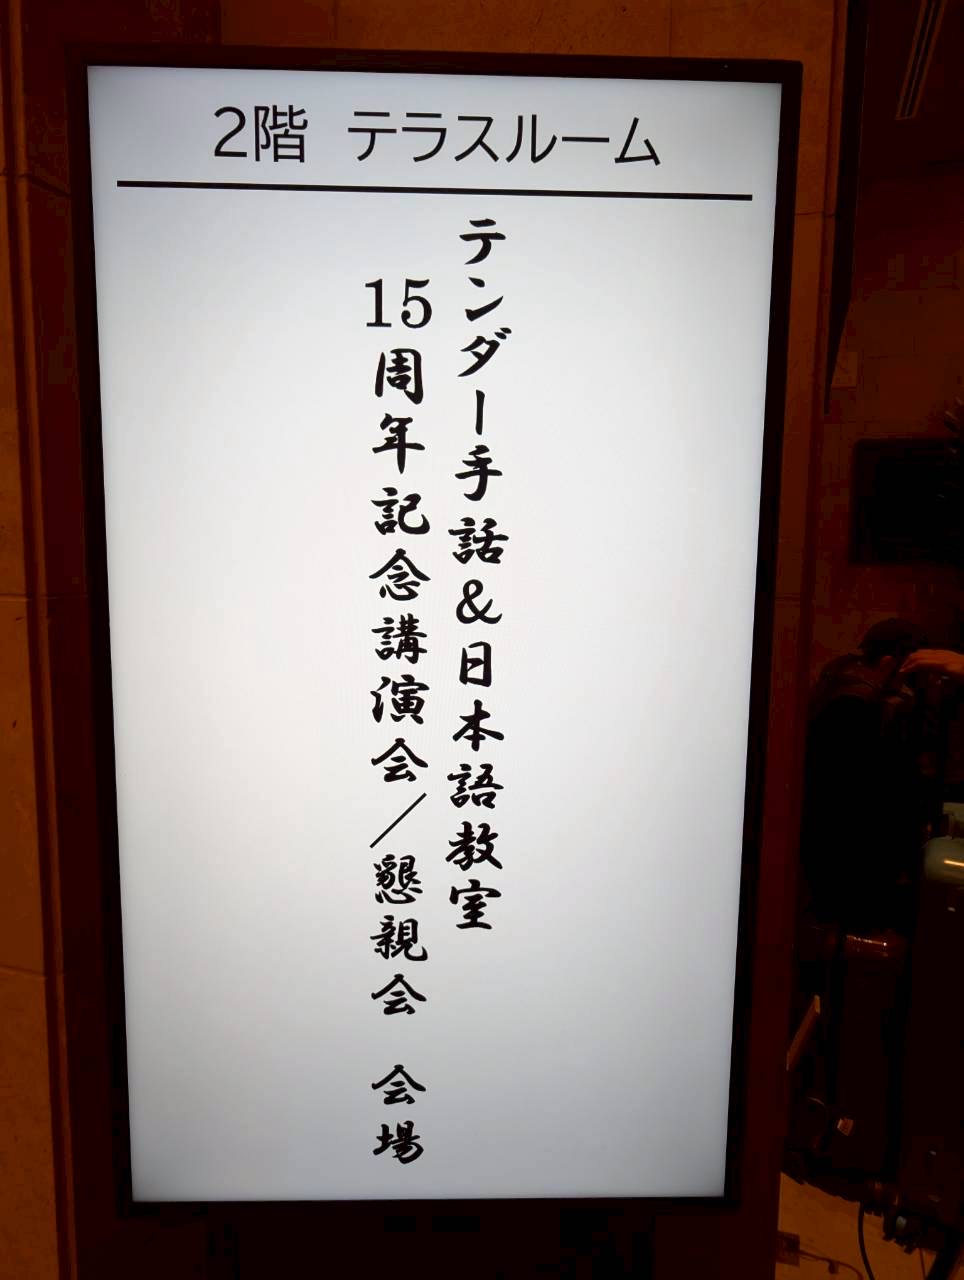 2階 テラスルーム
テンダー手話&日本語教室
15周年記念講演会/懇親会 会場